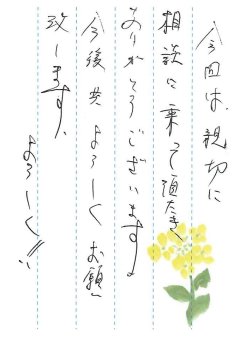 今回は、親切に
相談に乗って頂き
ありがとうございます。
今後共よろしくお願い
致します。
よろしく!!